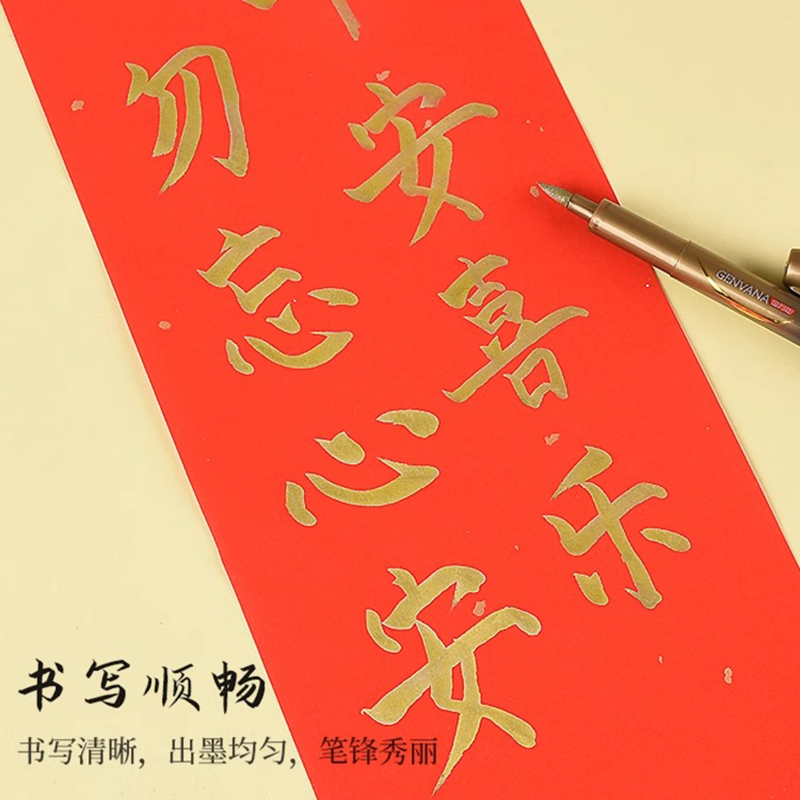 安喜乐
勿忘心安
GENVANA
书写顺畅
书写清晰，出墨均匀，笔锋秀丽